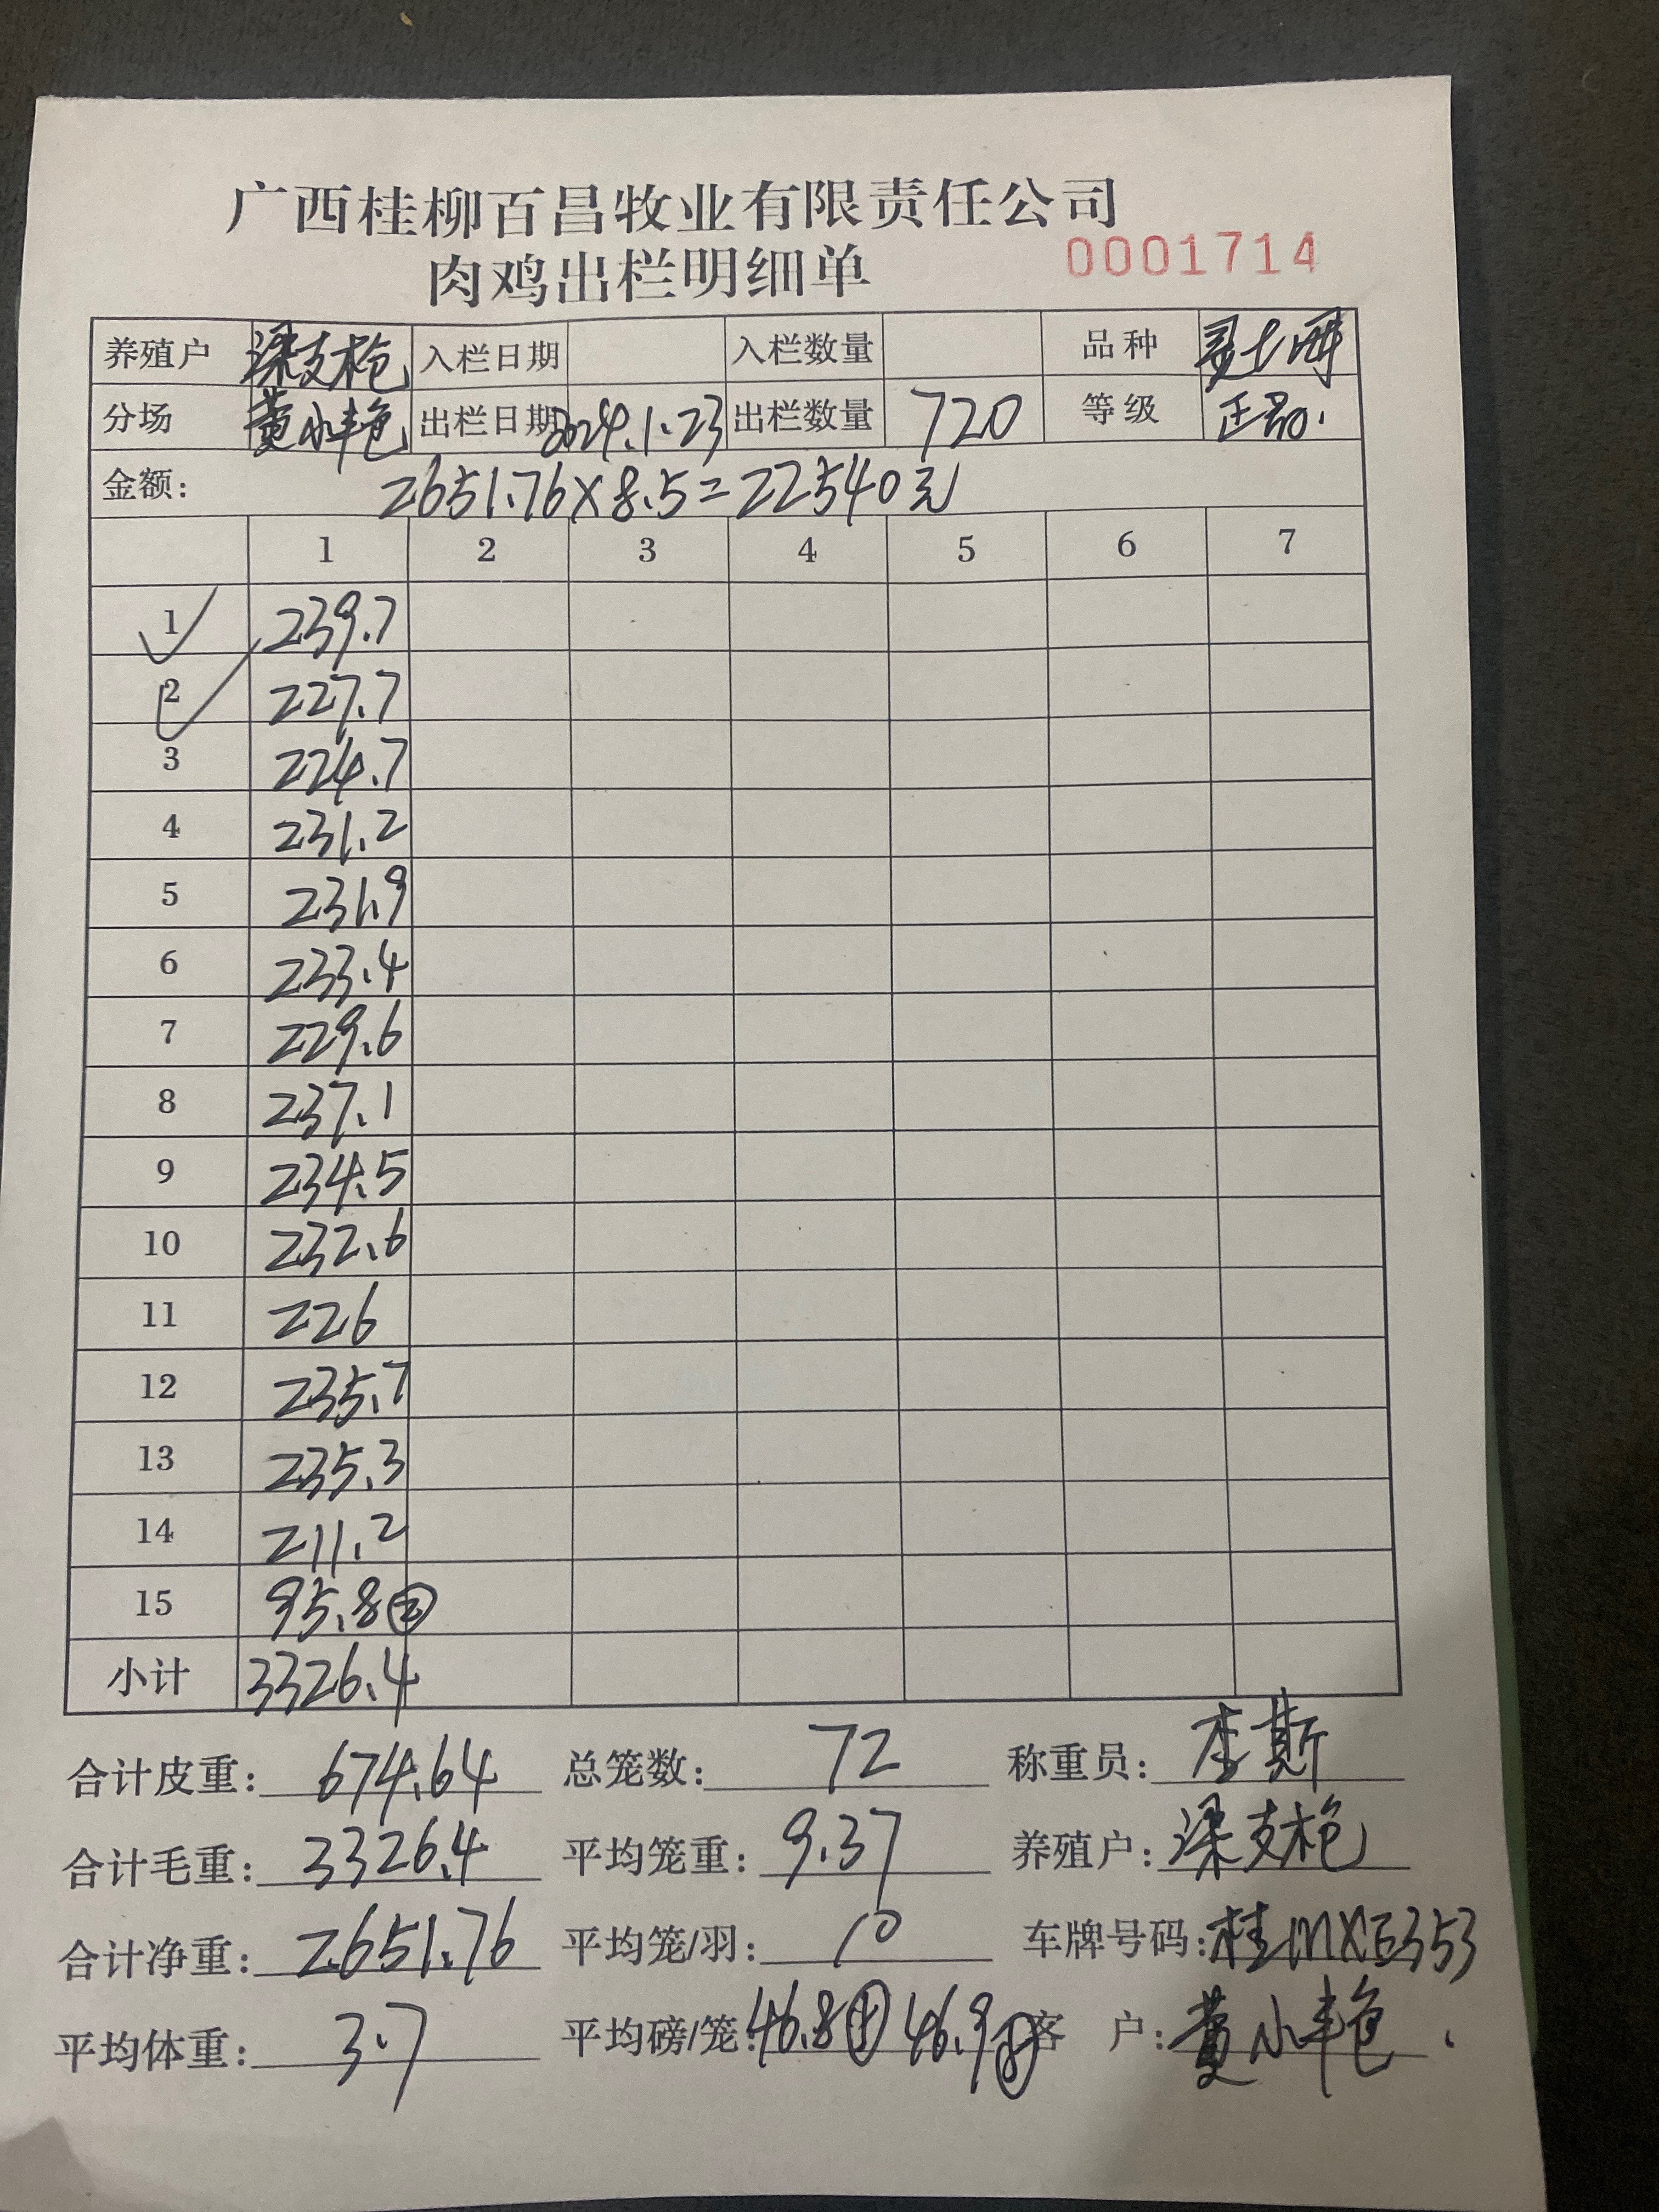 广西桂柳百昌牧业有限责任公司
肉鸡出栏明细单 0001714
养殖户 梁支枪 入栏日期 入栏数量 品种
分场 黄小丰色 出栏日期 2024.1.23 出栏数量 720 等级 正品.
金额: 2651.76×8.5=22540元
1 2 3 4 5 6 7
1 239.7
2 227.7
3 224.7
4 231.2
5 231.9
6 233.4
7 229.6
8 237.1
9 234.5
10 232.6
11 226
12 235.7
13 235.3
14 211.2
15 95.8②
小计 3326.4
合计皮重: 674.64 总笼数: 72 称重员: 李斯
合计毛重: 3326.4 平均笼重: 9.37 养殖户: 梁支枪
合计净重: 2651.76 平均笼/羽: 10 车牌号码: 桂MXE353
平均体重: 3.7 平均磅/笼: 46.8 46.9 客 户: 黄小丰色